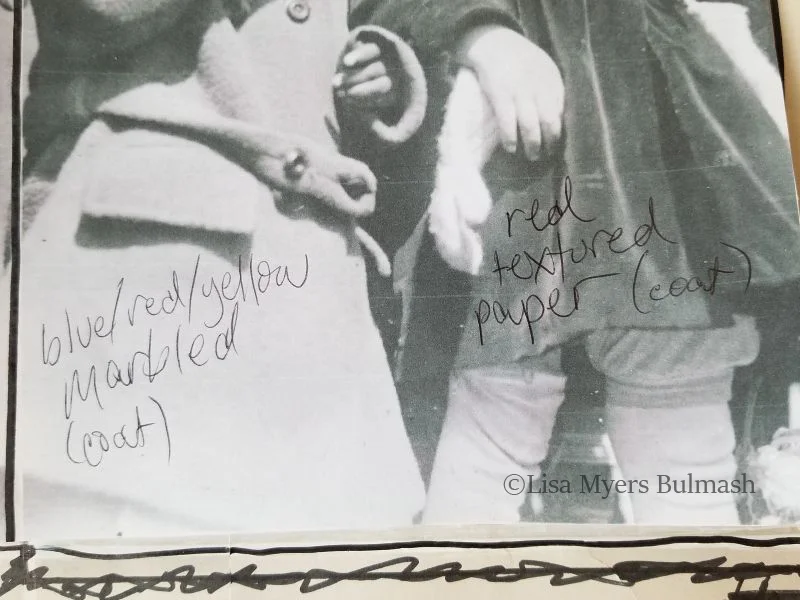 blue/red/yellow
marbled
(coat)
red
textured
paper (coat)
©Lisa Myers Bulmash